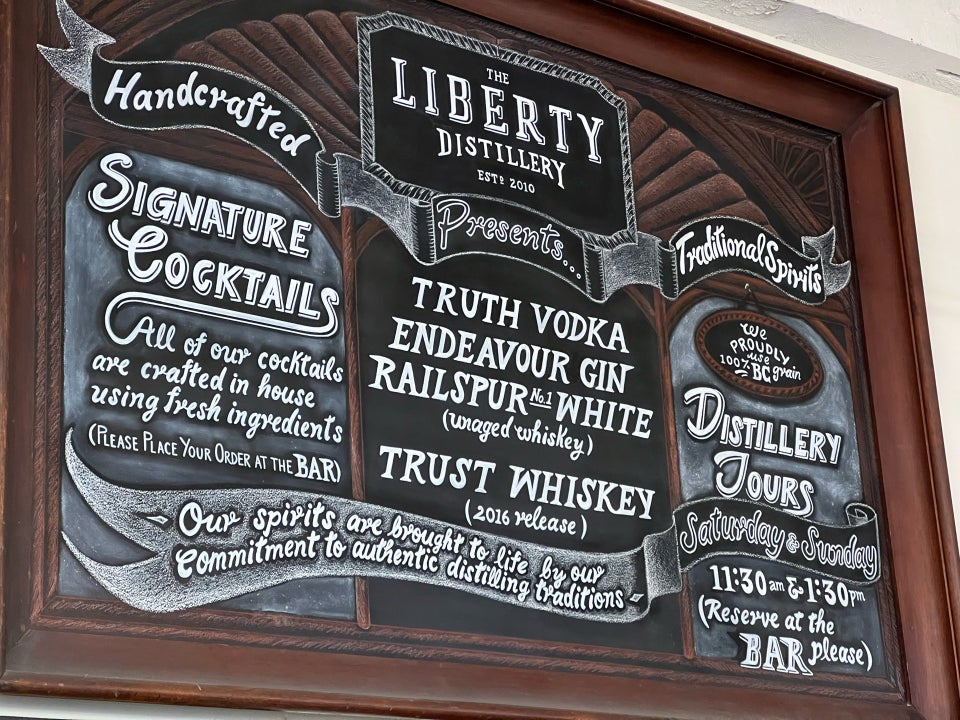 THE
LIBERTY
DISTILLERY
ESTD 2010
Handcrafted
Presents...
Traditional Spirits
SIGNATURE
COCKTAILS
All of our cocktails
are crafted in house
using fresh ingredients
(PLEASE PLACE YOUR ORDER AT THE BAR)
TRUTH VODKA
ENDEAVOUR GIN
RAILSPUR No.1 WHITE
(unaged whiskey)
TRUST WHISKEY
(2016 release)
We
PROUDLY
use
100% BC grain
DISTILLERY
TOURS
Saturday & Sunday
11:30 am & 1:30 pm
(Reserve at the
BAR please)
Our spirits are brought to life by our
Commitment to authentic distilling traditions